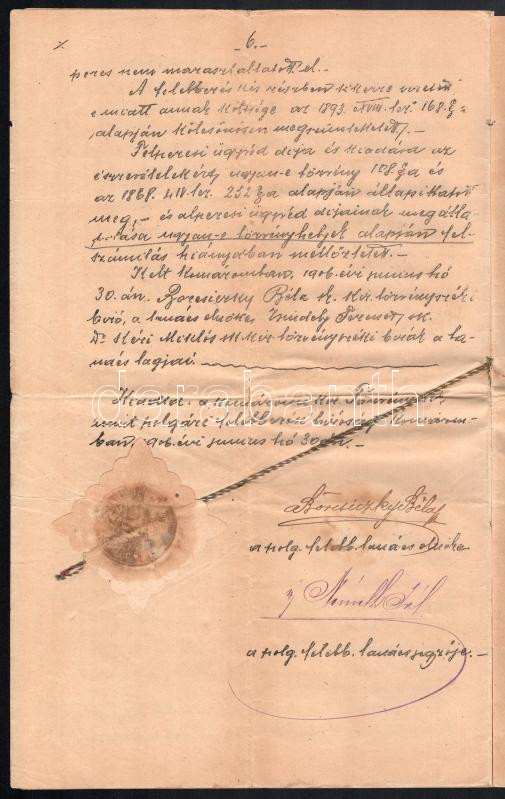 6.-
peres nem marasztaltatott el.-
A felebbezés kis részben sikerre vezetvén
emiatt annak költsége az 1893. XVIII. tcz. 168. §-a
alapján kölcsönösen megszüntettetett.-
Felperesi ügyvéd dija és kiadása az
észrevételekért ugyan-e törvény 108. §-a és
az 1868. LIV. tcz. 252 §-a alapján állapittatott
meg,- és alperesi ügyvéd dijainak megálla-
pitása ugyan-e törvényhelyek alapján fel-
számitás hiányában mellőztetett.-
Kelt Komáromban, 1906. évi junius hó
30.-án. Börcsiczky Béla sk. kir. törvényszéki
biró, a tanács elnöke, Ferencz sk.
Dr Kéri Miklós sk. kir. törvényszéki birák a ta-
nács tagjai.
Kiadta: a komáromi kir. Törvényszék,
mint polgári felebbezési biróság Komárom-
ban, 906. évi junius hó 30.án.-
darabanth
Börcsiczky Béla
a polg. felebb. tanács elnöke
Németh Pál
a polg. felebb. tanács jegyzője.-